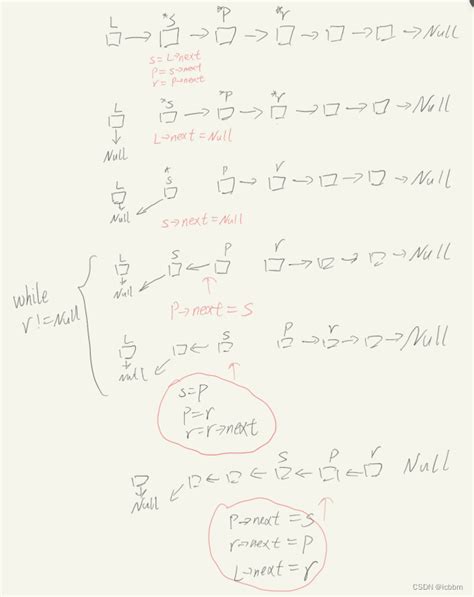 L *s *p *r
→ → → → → → Null
s=L→next
p=s→next
r=p→next
L *s *p *r
→ → → → → Null
Null
L→next=Null
* p r
L s → → → → Null
Null
s→next=Null
L s p r
← → → → Null
Null
while
r!=Null
p→next=s
L s p r
← → → → Null
Null
s=p
p=r
r=r→next
s p r Null
← ← ← ← ←
Null
p→next=s
r→next=p
L→next=r
CSDN @lcbbm